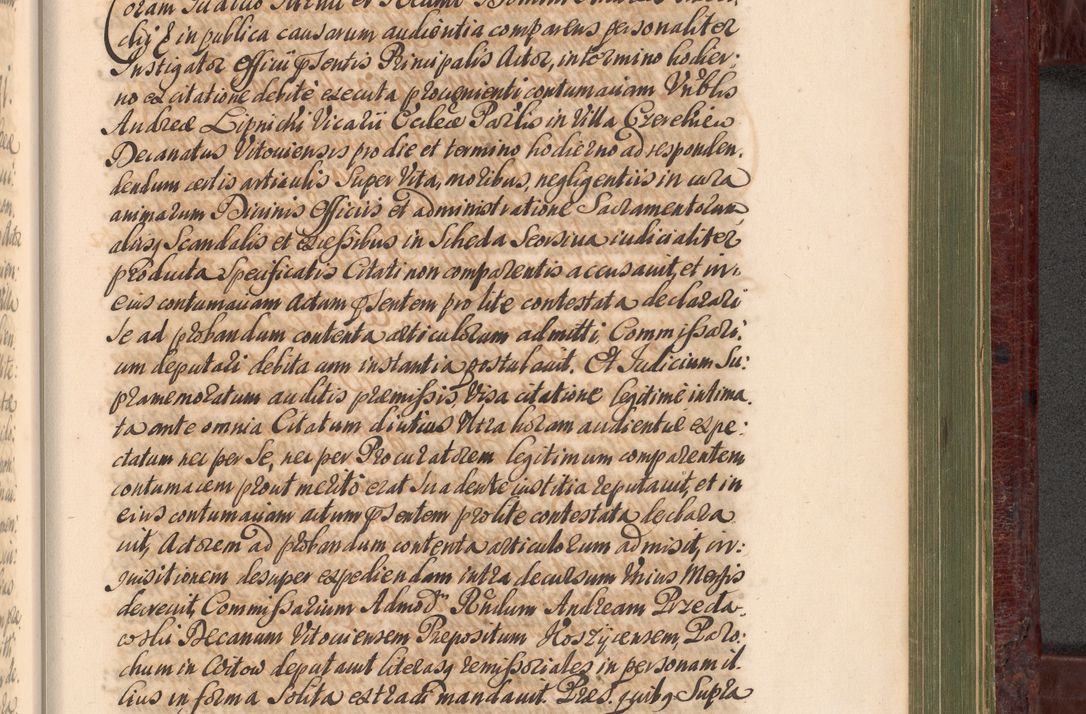 coram Judicio
chij &c in publica causarum audientia comparens personaliter
Instigator Officii pſentis Principalis Actor, in termino hodier:
no ex citatione debite executa provenienti contumaciam Vnblis
Andreæ Lipnicki Vicarii Ecclæ Parlis in Villa Czerchiew
Decanatus Vitoviensis pro die et termino hodierno ad responden.
dendum certis articulis Super Vita, moribus, negligentiis in cura
animarum Divinis Officiis et administratione Sacramentorum
alijs, Scandalis et exceſsibus in Scheda Seorsiva iudicialiter
producta Specificatis Citati non comparentis accusavit, et in
eius contumaciam actum pſentem pro lite contestata declarari
se ad probandum contenta articulorum admitti, Commiſsari:
um deputari debita cum instantia postulavit. Et Judicium Su:
pramemoratum auditis præmiſsis Visa citatione legitimè intima.
ta ante omnia Citatum diutius Ultra horam audientiæ expe:
ctatum nec per Se, nec per Procuratorem legitimum comparentem
contumacem prout meritò erat Suadente iustitia reputavit, et in
eius contumaciam actum pſentem pro lite contestata declara
vit, Actorem ad probandum contenta articulorum admisit, in:
quisitionem desuper expediendam intra decursum Unius Menſis
decrevit, Commiſsarium Admodm Rñdum Andream Przeda-
coski Decanum Vitoviensem Præpositum Koszycensem, Paro:
chum in Witow deputavit literasq remiſsoriales in personam il.
lius in forma Solita extradi mandavit. Præs. quibq Supra